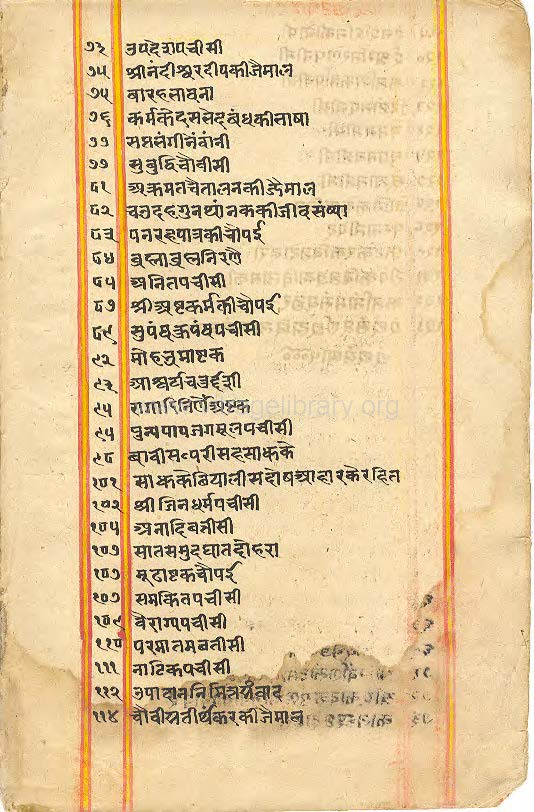 ७३ उपदेशपचीसी
७५ श्रीनंदीश्वरदीपकीजैमाल
७५ बारहभावना
७६ कर्मकेदसभेदबंधकीभाषा
७७ सप्तभंगीनंबांनी
७७ सुबुद्धिचौवीसी
८१ अकृमतचैतालनकीजैमाल
८२ चउदहगुनथांनककीजीवसंष्या
८३ पनरहपात्रकीचौपई
८४ ब्रह्माब्रह्मनिरणै
८५ अनितपचीसी
८७ श्रीअष्टकर्मकीचौपई
८९ सुपंथकुपंथपचीसी
९२ मोहभ्रमाष्टक
९३ आश्चर्यचतुर्दशी
९५ रागादिनिर्णैअष्टक
९५ पुन्यपापजगमूलपचीसी
९८ बावीसपरीसहसाधकके
१०१ साधकेछियालीसदोषआहारकेरहित
१०२ श्रीजिनधर्मपचीसी
१०५ अनादिबतीसी
१०७ सातसमुदघातदोहरा
१०७ मूढाष्टकचौपई
१०७ समकितपचीसी
१०९ वैराग्यपचीसी
११० परमातमबतीसी
१११ नाटिकपचीसी
११२ उपादाननिमित्तसंवाद
११४ चौवीसतीर्थकरकीजैमाल